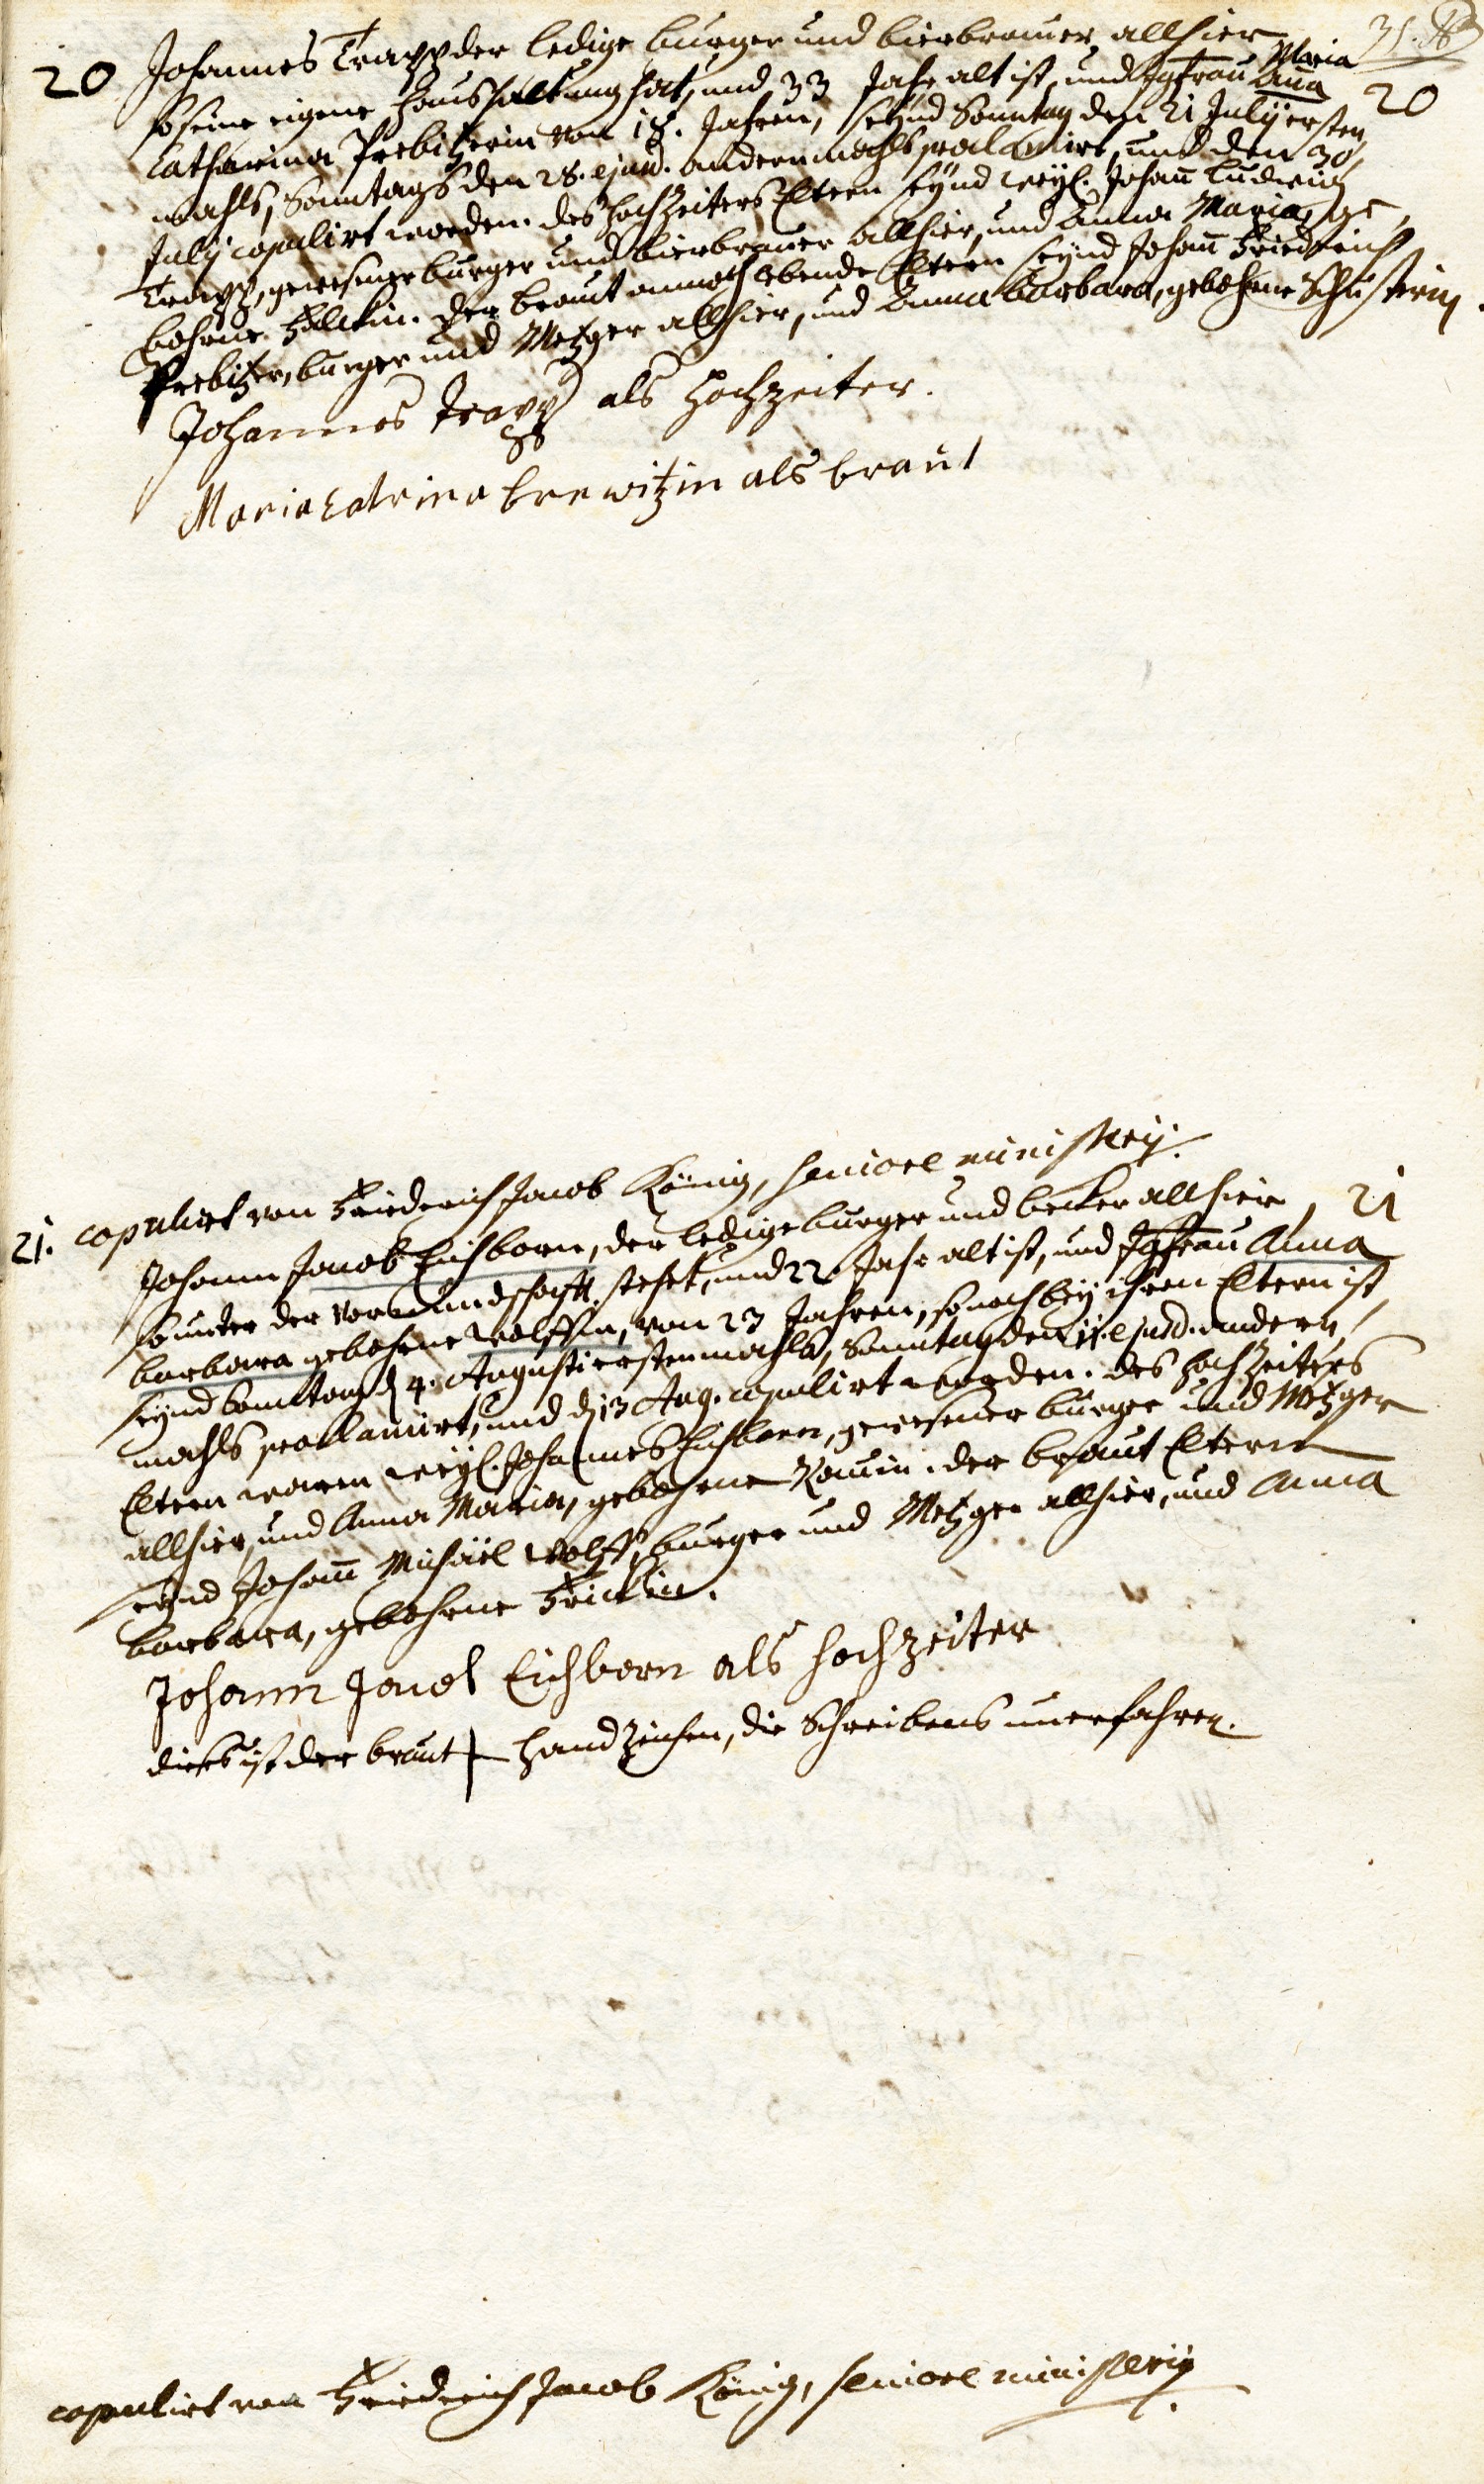 20 Johannes Trapp der ledige burger und bierbrauer allhier 31.
so seine eigene Haushaltung hat, und 33 Jahr alt ist, und Jgfrau Maria Anna 20
Catharina Prebitzerin von 18. Jahren, seynd Sonntag den 21 Julij ersten
mahls, Sonntags den 28. ejusd. andern mahls proclamirt, und den 30
Julij copulirt worden. des Hochzeiters Eltern seynd weyl. Johañ Ludwig
Trapp, gewesener burger und bierbrauer allhier, und Anna Maria, ge,
bohrne. der braut annoch lebende Eltern seynd Johañ Friedrich
Prebitzer, burger und Metzger allhier, und Anna Barbara, gebohrne Schusterin.
Johannes Trapp als Hochzeiter.
Maria Catrina brewitzin als braut
copulirt von Friederich Jacob König, seniore ministerij.
21. Johann Jacob Eichborn, der ledige burger und becker allhier, 21
so unter der Vormundschafft stehet, und 22 Jahr alt ist, und Jgfrau Anna
barbara gebohrne Wolffin, von 23 Jahren, so noch bey ihren Eltern ist,
seynd Sonntag d 4. Augusti ersten mahls, Sonntag den 11. ejusd. andern
mahls proclamirt, und d 13 Aug. copulirt worden. des Hochzeiters
Eltern waren weyl. Johannes Eichborn, gewesener burger und Metzger
allhier, und Anna Maria, gebohrne. der braut Eltern
seynd Johañ Michäel Wolff, burger und Metzger allhier, und Anna
barbara, gebohrne Frickin.
Johann Jacob Eichborn als Hochzeiter
dieses ist der braut + handzeichen, die Schreibens unerfahren.
copulirt von Friedrich Jacob König, seniore ministerij.